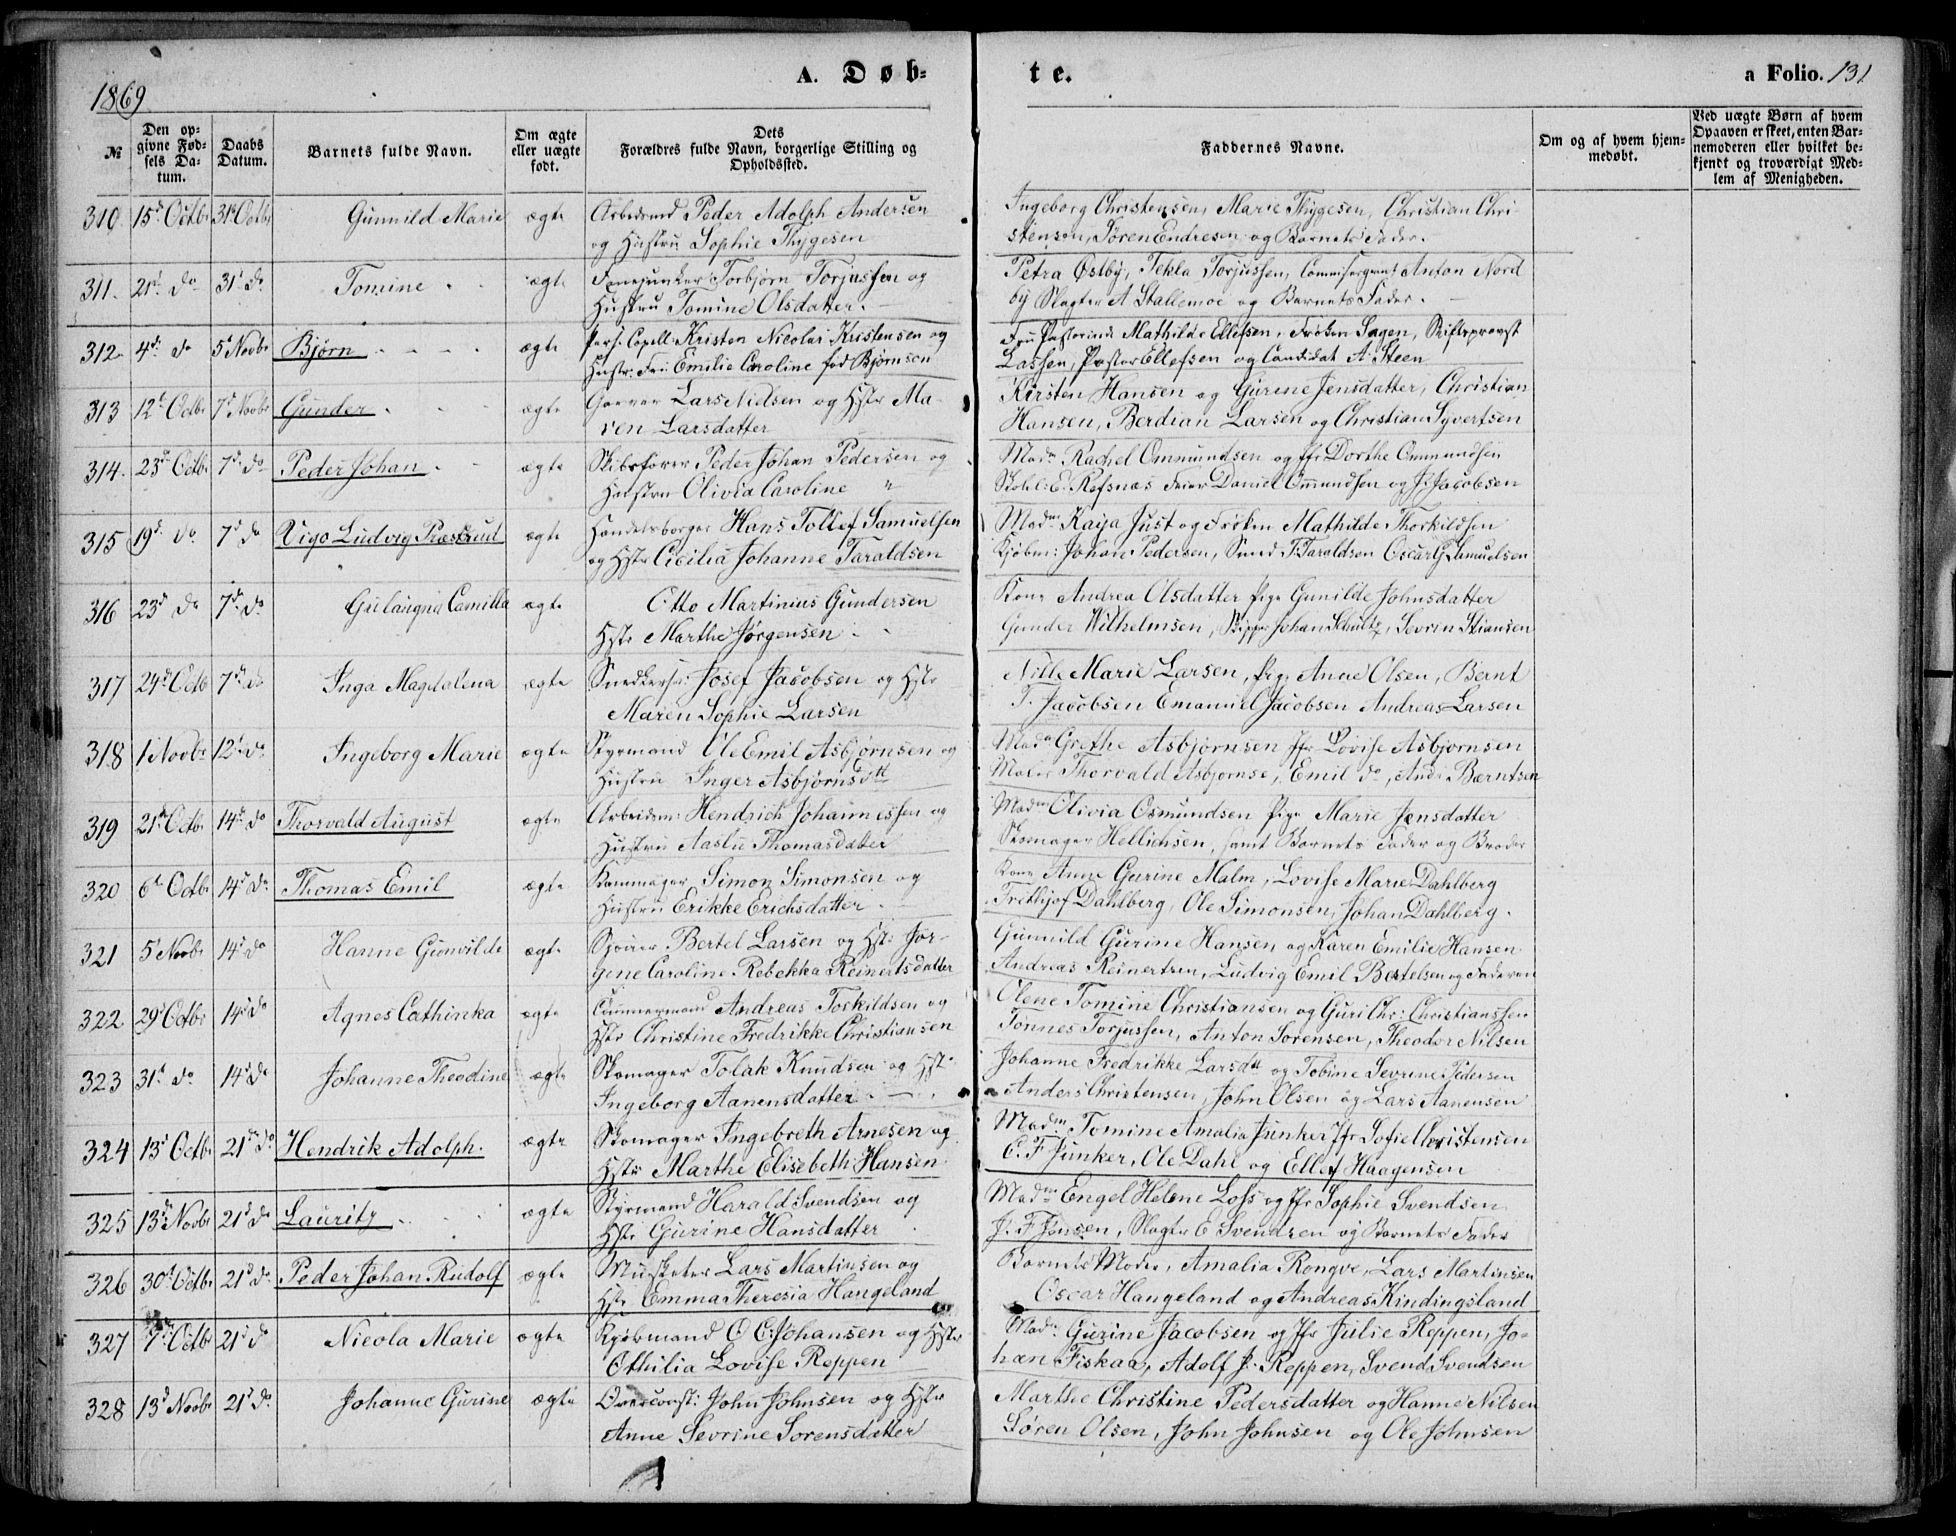 1869.
A. Døb-
te.
a Folio. 131
№
Den op-
givne Fød-
sels Da-
tum.
Daabs
Datum.
Barnets fulde Navn.
Om ægte
eller uægte
født.
Dets
Forældres fulde Navn, borgerlige Stilling og
Opholdssted.
Faddernes Navne.
Om og af hvem hjem-
medøbt.
Ved uægte Børn af hvem
Opgaven er skeet, enten Bar-
nemoderen eller hvilket be-
kjendt og troværdigt Med-
lem af Menigheden.
310. 15d Octbr 31d Octbr Gunnild Marie ægte Arbeidsmd Peder Adolph Andersen
og Hustru Sophie Thygesen
Ingeborg Christensen, Marie Thygesen, Christian Chri-
stensen, Søren Endresen og Barnets Fader.
311. 21d do 31d do Tomine ægte Fanejunker Torbjørn Torjussen og
Hustru Tomine Olsdatter.
Petra Østby, Tekla Torjussen, Commisergent Anton Nord
by Slagter A Stallemoe og Barnets Fader.
312. 4d do 5d Novbr Bjørn ægte Pers: Capell: Kristen Nicolai Kristensen og
Hustr: Fru Emilie Caroline fød Bjørnson
Fru Pastorinde Mathilde Ellefsen, Frøken Sagen, Stiftsprovst
Lassen, Pastor Ellefsen og Candidat A Steen
313 12d Octbr 7d Novbr Gunder ægte Garver Lars Nielsen og Hstr Ma-
ren Larsdatter
Kirsten Hansen og Gurine Jensdatter, Christian
Hansen, Berdian Larsen og Christian Syvertsen
314. 23d Octbr 7d do Peder Johan ægte Skibsfører Peder Johan Pedersen og
Hustru Olivia Caroline "
Madm Rachel Ommundsen og Jfr Dorthe Ommundsen
Skolel: E. Refsnæs Daniel Ommundsen og J: Jacobsen
315 19d do 7d do Vigo Ludvig Præstrud ægte Handelsborger Hans Tollef Samuelsen
og Hstr Cicilia Johanne Taraldsen
Madm Kaija Just og Frøken Mathilde Thorkildsen
Kjøbm: Johan Pedersen, T. Taraldsen Oscar G Samuelsen
316 23d do 7d do Gulaugna Camilla ægte Otto Martinius Gundersen
Hstr Marthe Jørgensen.
Kone Andrea Olsdatter Pige Gunilde Johnsdatter
Gunder Wilhelmsen, Skipper Johan Schultz, Sevrin Stiansen
317 24d Octb 7d do Inga Magdalena ægte Snedkers: Josef Jacobsen og Hstr
Maren Sophie Larsen
Nille Marie Larsen, Pige Anne Olsen, Bernt
T. Jacobsen Emanuel Jacobsen Andreas Larsen
318 1 Novbr 12d do Ingeborg Marie ægte Styrmand Ole Emil Asbjørnsen og
Hustru Inger Asbjørnsdtt
Madm Grethe Asbjørnsen Jfr Lovise Asbjørnsen
Maler Thorvald Asbjørnse, Emil do, Andr Bærntsen
319 21d Octbr 14d do Thorvald August ægte Arbeidsm: Hendrich Johannessen og
Hustru Aaslu Thomasdatter
Madm Olivia Osmundsen Pige Marie Jensdatter
Skomager Hellichsen, samt Barnets Fader og Broder
320 6d Octbr 14d do Thomas Emil ægte Kammager Simon Simonsen og
Hustru Erikke Erichsdatter.
Kone Anne Gurine Malm, Lovise Marie Dahlberg
Frithjof Dahlberg, Ole Simonsen, Johan Dahlberg.
321 5d Novbr 14d do Hanne Gunvilde ægte Bertel Larsen og Hst: Jør-
gine Caroline Rebekka Reinertsdatter
Gunnild Gurine Hansen og Karen Emilie Hansen
Andreas Reinertsen, Ludvig Emil Bertelsen og Faderen
322 29d Octbr 14d do Agnes Cathinka ægte Tømmermand Andreas Torkildsen og
Hstr Christine Fredrikke Christiansen
Olene Tomine Christiansen og Guri Chr: Christianssen
Tønnes Torjussen, Anton Sørensen, Theodor Nilsen
323 31d do 14d do Johanne Theodine ægte Skomager Tolak Knudsen og Hst:
Ingeborg Aanensdatter.
Johanne Fredrikke Larsdtt og Tobine Sevrine Pedersen
Anders Christensen, John Olsen og Lars Aanensen
324 13d Octbr 21d do Hendrik Adolph. ægte Skomager Ingebreth Arnesen og
Hstr Marthe Elisebeth Hansen
Madm Tomine Amalia Junker Jfr Sofie Christensen
C. F Junker, Ole Dahl og Ellef Haagensen
325 13d Novbr 21d do Lauritz ægte Styrmand Harald Svendsen og
Hstr Gurine Hansdatter
Madm Engel Helene Loss og Jfr Sophie Svendsen
J. F Jensen, Slagter E Svendsen og Barnets Fader
326 30d Octbr 21d do Peder Johan Rudolf ægte Musketer Lars Martinsen og
Hstr Emma Theresia Hangeland
Barnets Moder, Amalia Rongve, Lars Martinsen
Oscar Hangeland og Andreas Kindingsland
327 7d Octbr 21d do Nicola Marie ægte Kjøbmand O C. Johansen og Hstr
Othilia Lovise Reppen
Madm Gurine Jacobsen og Jfr Julie Reppen, Jo-
han Fiskaa, Adolf J. Reppen, Svend Svendsen
328 13d Novbr 21d do Johanne Gurine ægte Overconst: John Johnsen og Hstr
Anne Sevrine Sørensdatter
Marthe Christine Pedersdatter og Hanne Nilsen
Søren Olsen, John Johnsen og Ole Johnsen